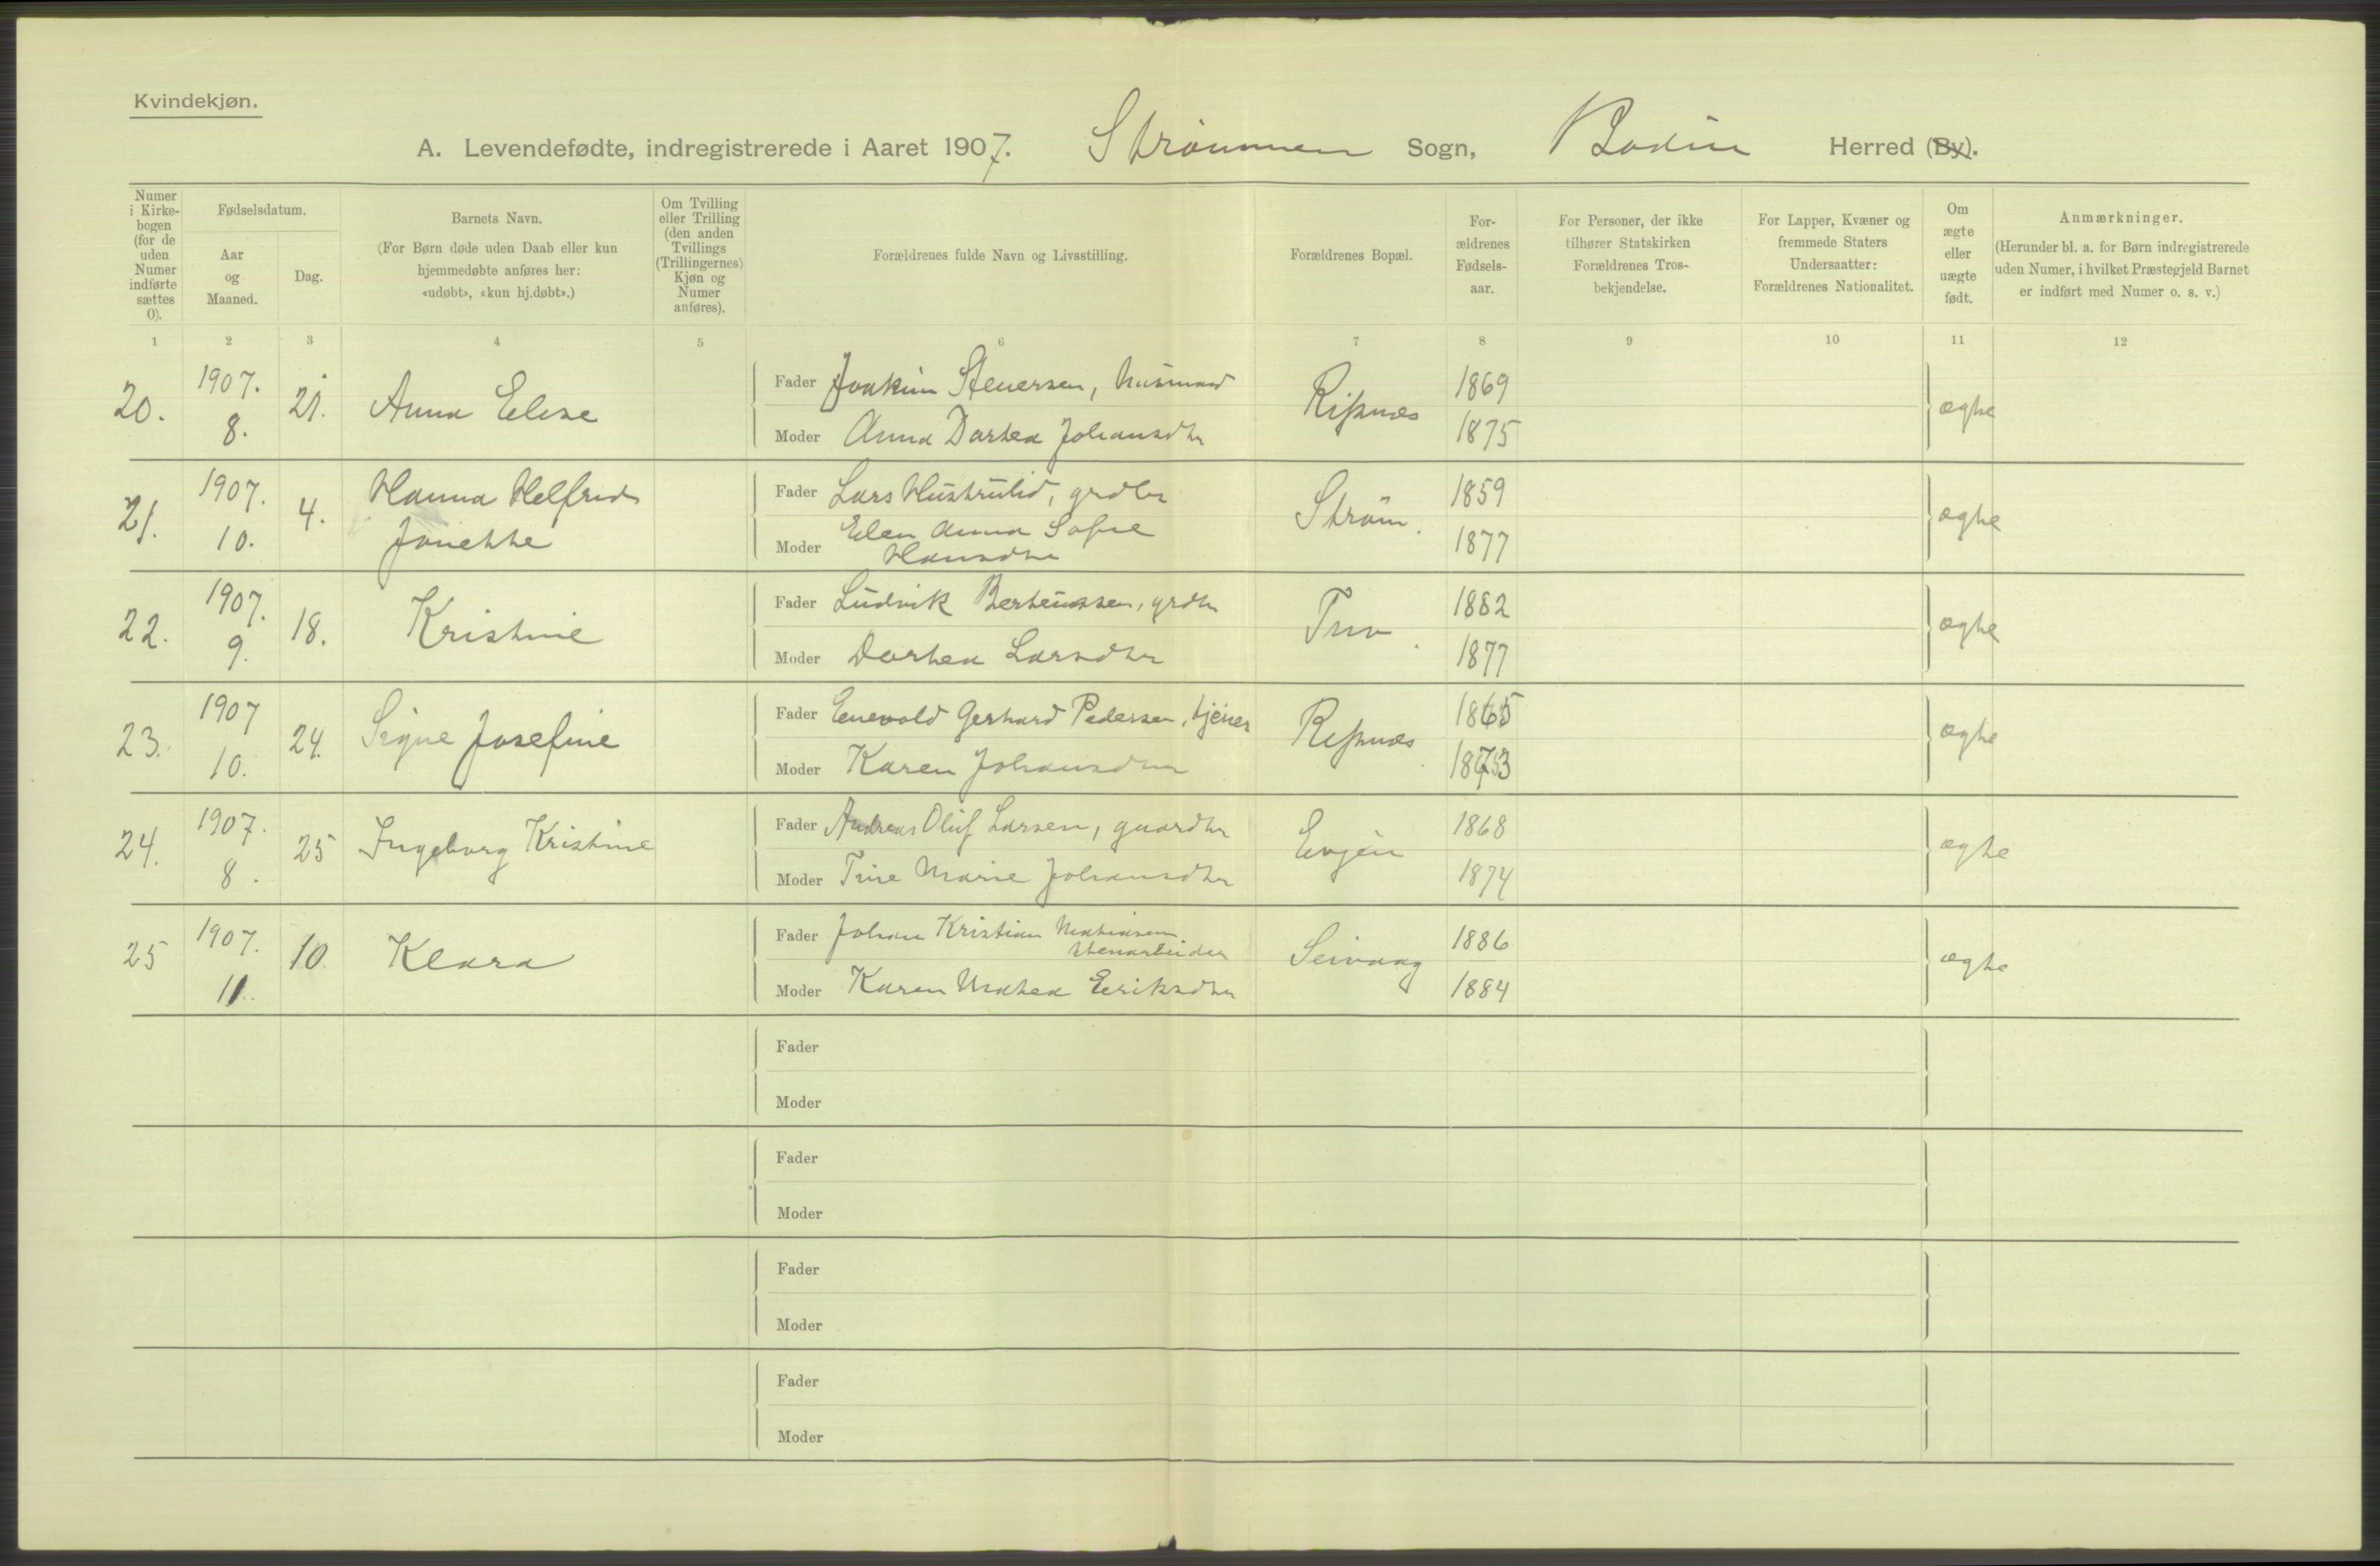 Kvindekjøn.
A. Levendefødte, indregistrerede i Aaret 1907. Strømmen Sogn, Bodin Herred (By).
Numer i Kirke-bogen (for de uden Numer indførte sættes 0).
Fødselsdatum.
Aar og Maaned.
Dag.
Barnets Navn.
(For Børn døde uden Daab eller kun
hjemmedøbte anføres her:
«udøbt», «kun hj.døbt».)
Om Tvilling
eller Trilling
(den anden
Tvillings
(Trillingernes)
Kjøn og
Numer
anføres).
Forældrenes fulde Navn og Livsstilling.
Forældrenes Bopæl.
For-
ældrenes
Fødsels-
aar.
For Personer, der ikke
tilhører Statskirken
Forældrenes Tros-
bekjendelse.
For Lapper, Kvæner og
fremmede Staters
Undersaatter:
Forældrenes Nationalitet.
Om
ægte
eller
uægte
født.
Anmærkninger.
(Herunder bl. a. for Børn indregistrerede
uden Numer, i hvilket Præstegjeld Barnet
er indført med Numer o. s. v.)
1 2 3 4 5 6 7 8 9 10 11 12
20. 1907. 8. 21. Anna Elise
Fader Joakim Stenersen, husmand Risnæs 1869 ægte
Moder Anna Dortea Johansdtr 1875
21. 1907. 10. 4. Hanna Helfrid
Jonette
Fader Lars Hustrulid, grdbr Strøm. 1859 ægte
Moder Elen Anna Sofie
Hansdtr 1877
22. 1907. 9. 18. Kristine
Fader Ludvik Berteussen, grdbr 1882 ægte
Moder Dortea Larsdtr 1877
23. 1907 10. 24. Signe Josefine
Fader Enevold Gerhard Pedersen, tjener Risnæs 1865 ægte
Moder Karen Johansdtr 1873
24. 1907. 8. 25 Ingeborg Kristine
Fader Andreas Oluf Larsen, gaardbr Evjen 1868 ægte
Moder Trine Marie Johansdtr 1874
25 1907. 11. 10. Klara
Fader Johan Kristian Mathiasen
stenarbeider Seivaag 1886 ægte
Moder Karen Mathea Eriksdtr 1884
Fader
Moder
Fader
Moder
Fader
Moder
Fader
Moder